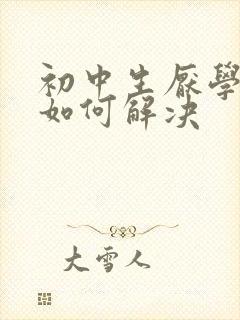 初中生厌學
如何解决
大雪人